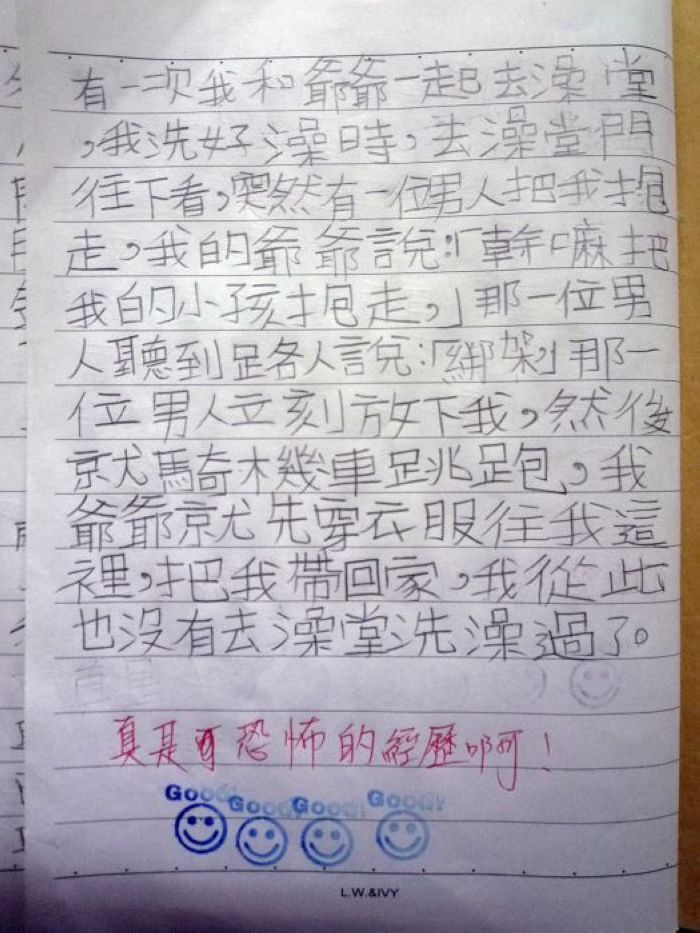 有一次我和爺爺一起去澡堂
，我洗好澡時，去澡堂門
往下看，突然有一位男人把我抱
走，我的爺爺說：「幹嘛把
我的小孩抱走，」那一位男
人聽到路人說：「綁架」那一
位男人立刻放下我，然後
就騎機車跳跑，我
爺爺就先穿衣服往我這
裡，把我帶回家，我從此
也沒有去澡堂洗澡過了。
真是可恐怖的經歷啊！
Good! Good! Good! Good!
L.W.&IVY